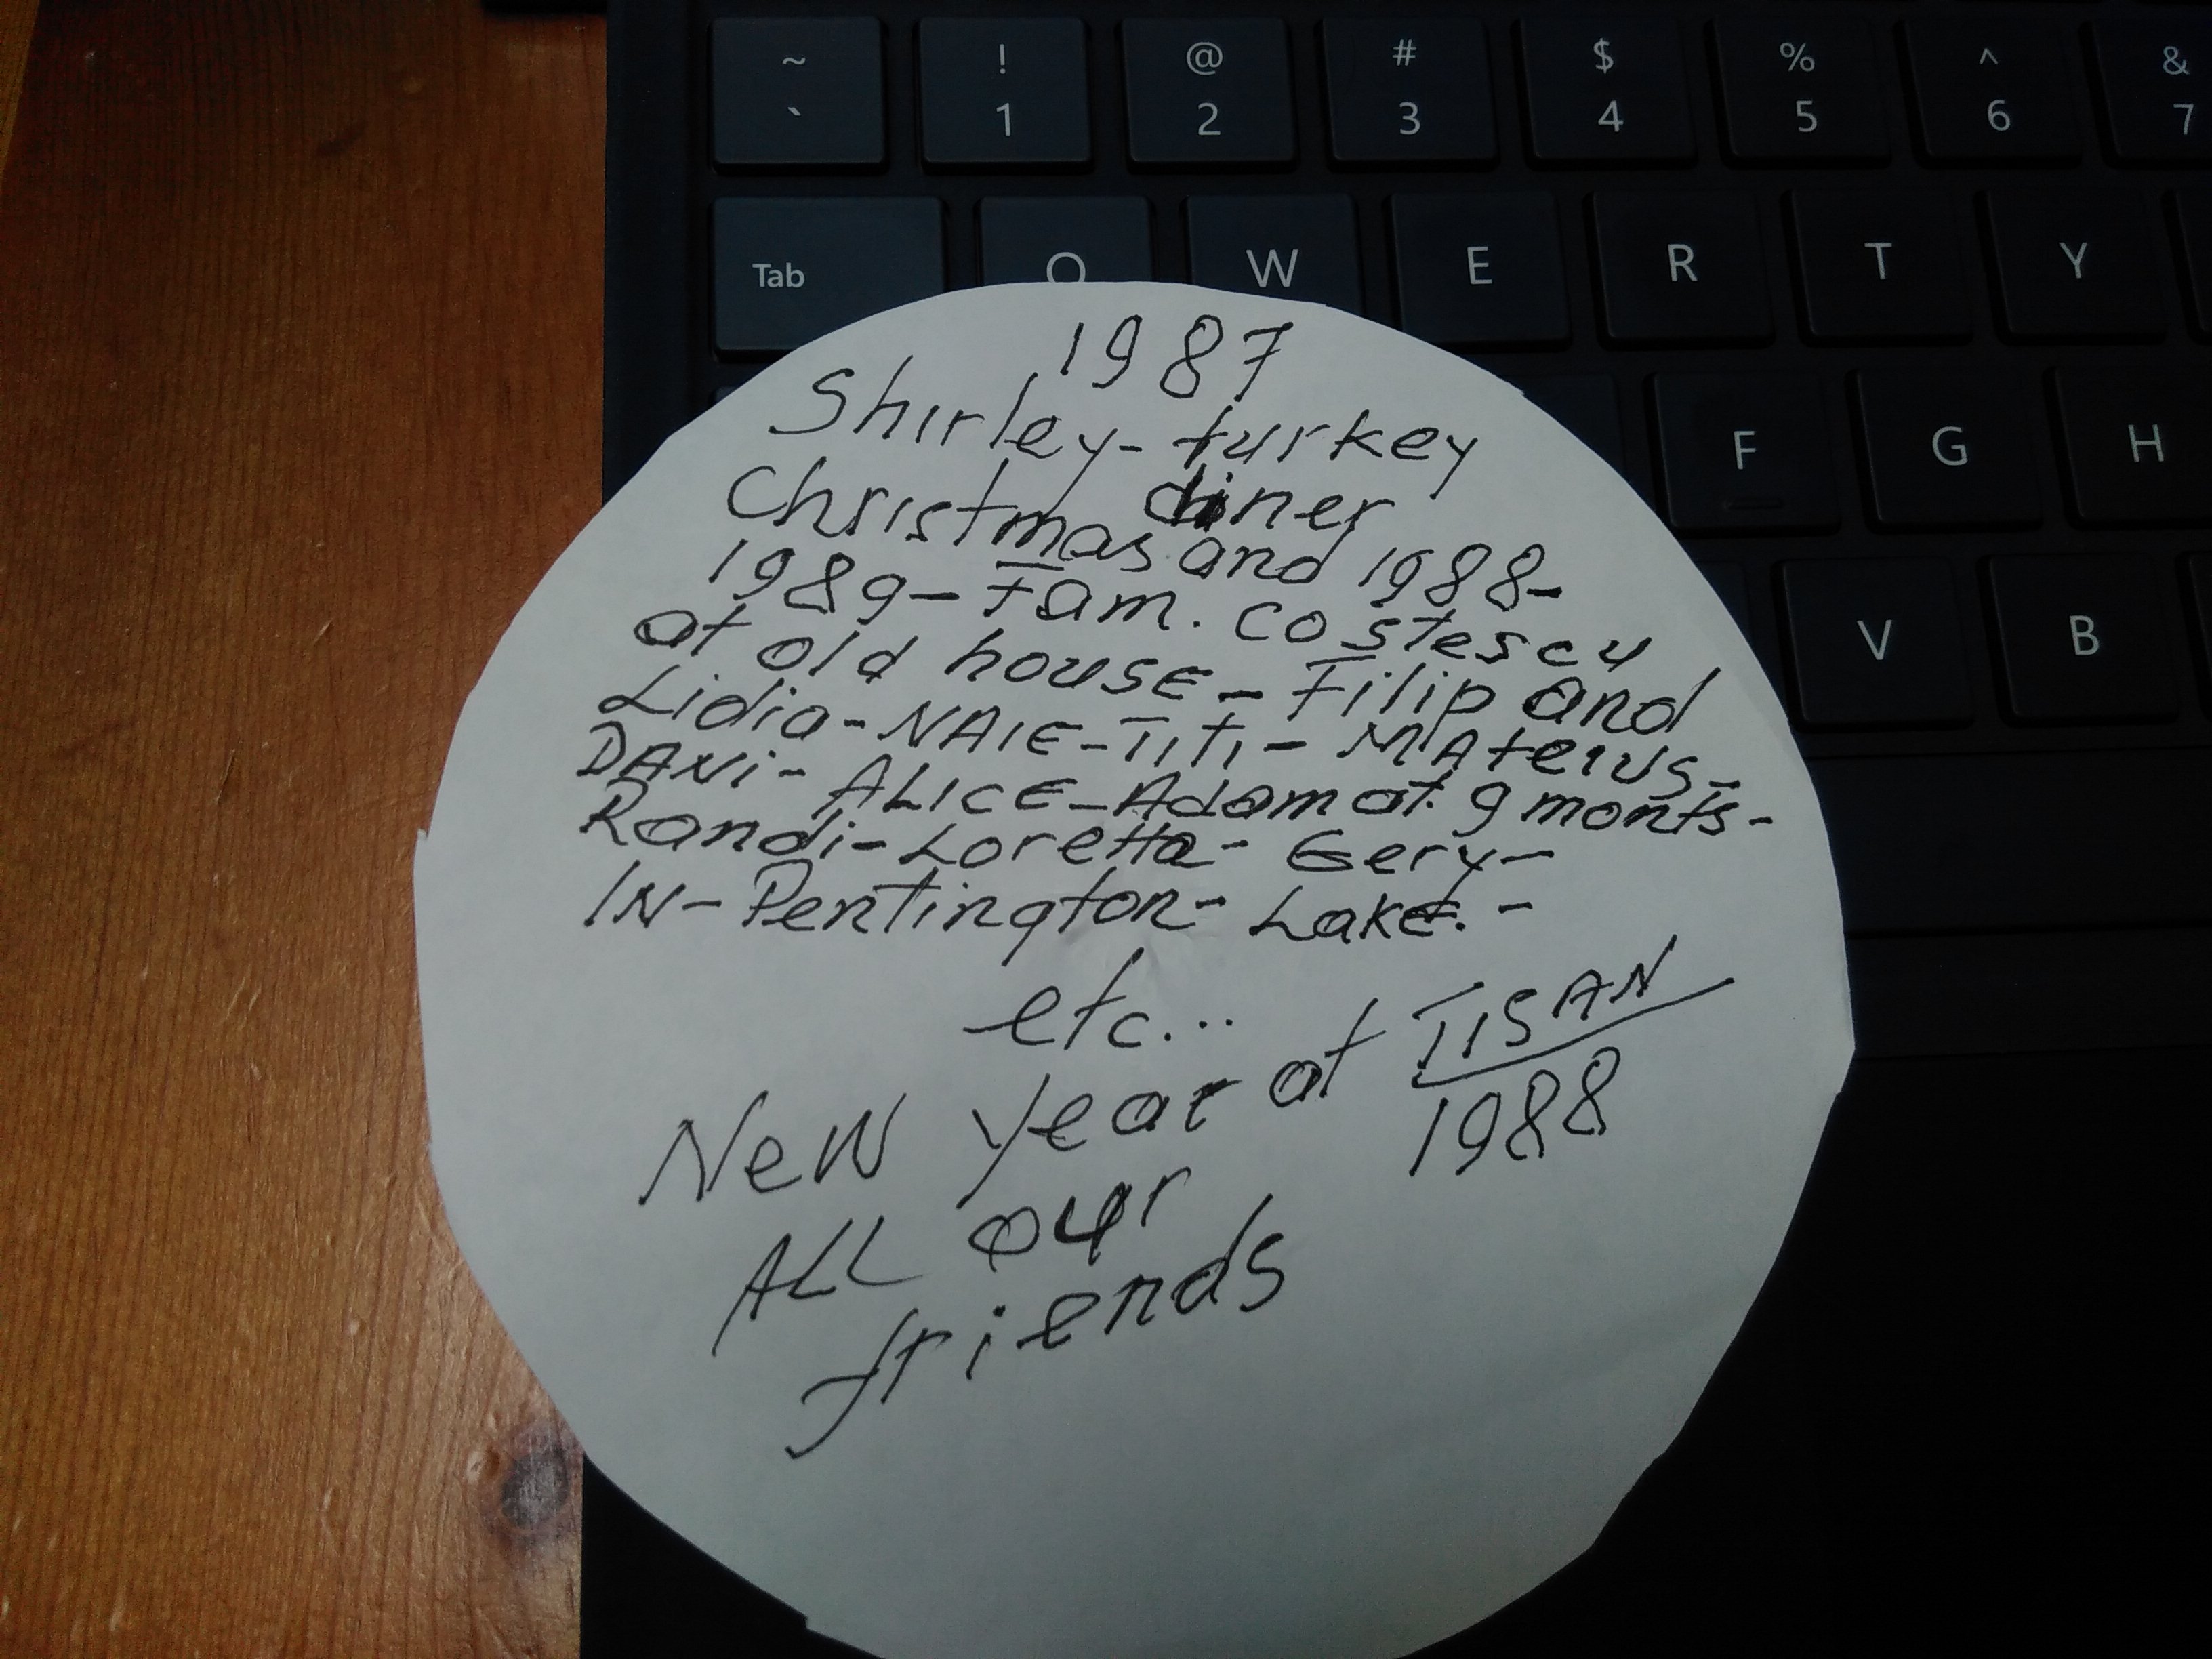 ~ ! @ # $ % ^ &
` 1 2 3 4 5 6 7
Tab Q W E R T Y
F G H
V B
1987
Shirley- turkey
diner
Christmas and 1988-
1989- Fam. Costescu
at old house- Filip and
Lidia- NAIE- Titi- MAteius-
DANi- ALICE- Adam at. 9 monts-
Randi- Loretta- Gery-
IN- Pentington- Lake. -
etc...
New year at TISAN
1988
ALL our
friends